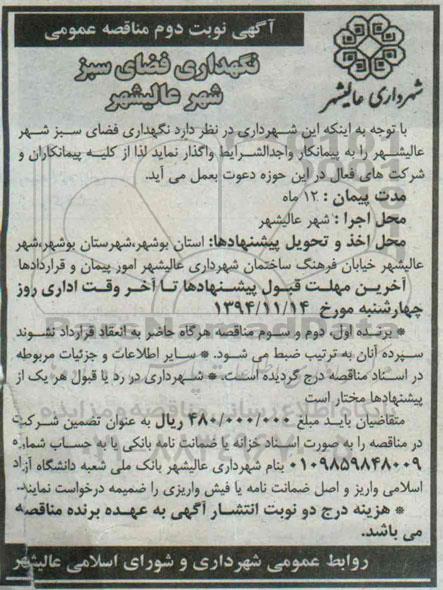 آگهی نوبت دوم مناقصه عمومی
شهرداری عالیشهر
نگهداری فضای سبز
شهر عالیشهر
با توجه به اینکه این شهرداری در نظر دارد نگهداری فضای سبز شهر
عالیشهر را به پیمانکار واجدالشرایط واگذار نماید لذا از کلیه پیمانکاران و
شرکت های فعال در این حوزه دعوت بعمل می آید.
مدت پیمان : ۱۲ ماه
محل اجرا : شهر عالیشهر
محل اخذ و تحویل پیشنهادها: استان بوشهر،شهرستان بوشهر،شهر
عالیشهر خیابان فرهنگ ساختمان شهرداری عالیشهر امور پیمان و قراردادها
آخرین مهلت قبول پیشنهادها تا آخر وقت اداری روز
چهارشنبه مورخ ۱۳۹۴/۱۱/۱۴
* برنده اول، دوم و سوم مناقصه هرگاه حاضر به انعقاد قرارداد نشوند
سپرده آنان به ترتیب ضبط می شود. * سایر اطلاعات و جزئیات مربوطه
در اسناد مناقصه درج گردیده است. * شهرداری در رد یا قبول هر یک از
پیشنهادها مختار است
متقاضیان باید مبلغ ۴۸۰/۰۰۰/۰۰۰ ریال به عنوان تضمین شرکت
در مناقصه را به صورت اسناد خزانه یا ضمانت نامه بانکی یا به حساب شماره
۰۱۰۹۸۵۹۸۴۸۰۰۹ بنام شهرداری عالیشهر بانک ملی شعبه دانشگاه آزاد
اسلامی واریز و اصل ضمانت نامه یا فیش واریزی را ضمیمه درخواست نمایند.
* هزینه درج دو نوبت انتشار آگهی به عهده برنده مناقصه
می باشد.
روابط عمومی شهرداری و شورای اسلامی عالیشهر